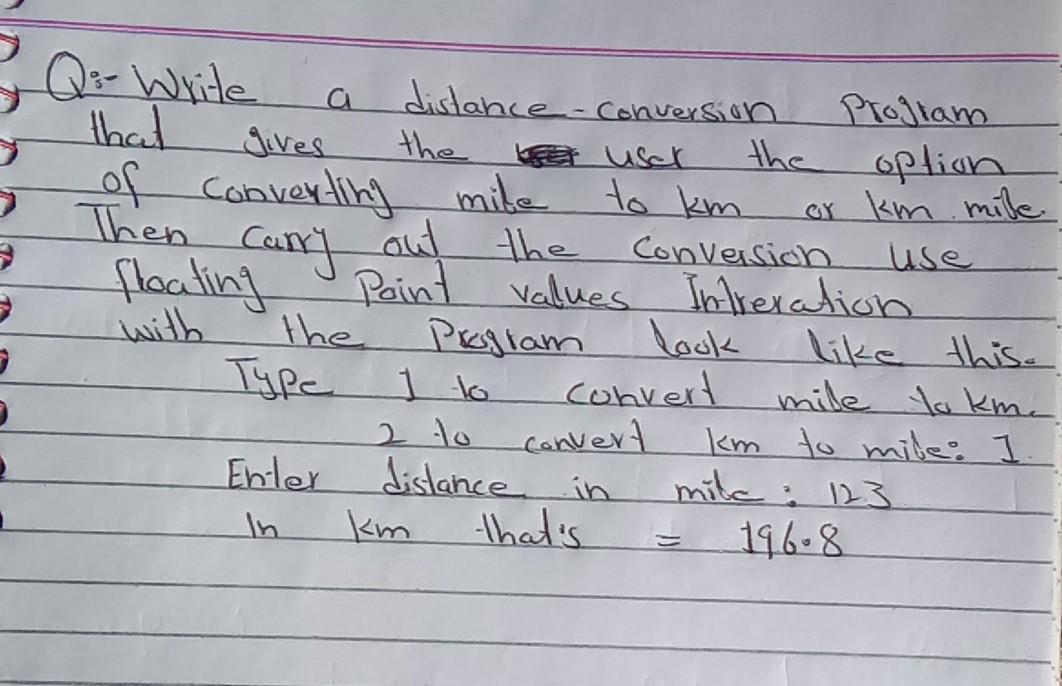 Q:- Write a distance-conversion Program
that gives the user the option
of converting mile to km or km mile.
Then carry out the conversion use
floating Point values Intreration
with the Program look like this.
Type 1 to convert mile to km.
2 to convert km to mile: 1
Enter distance in mile: 123
In km that's = 196.8